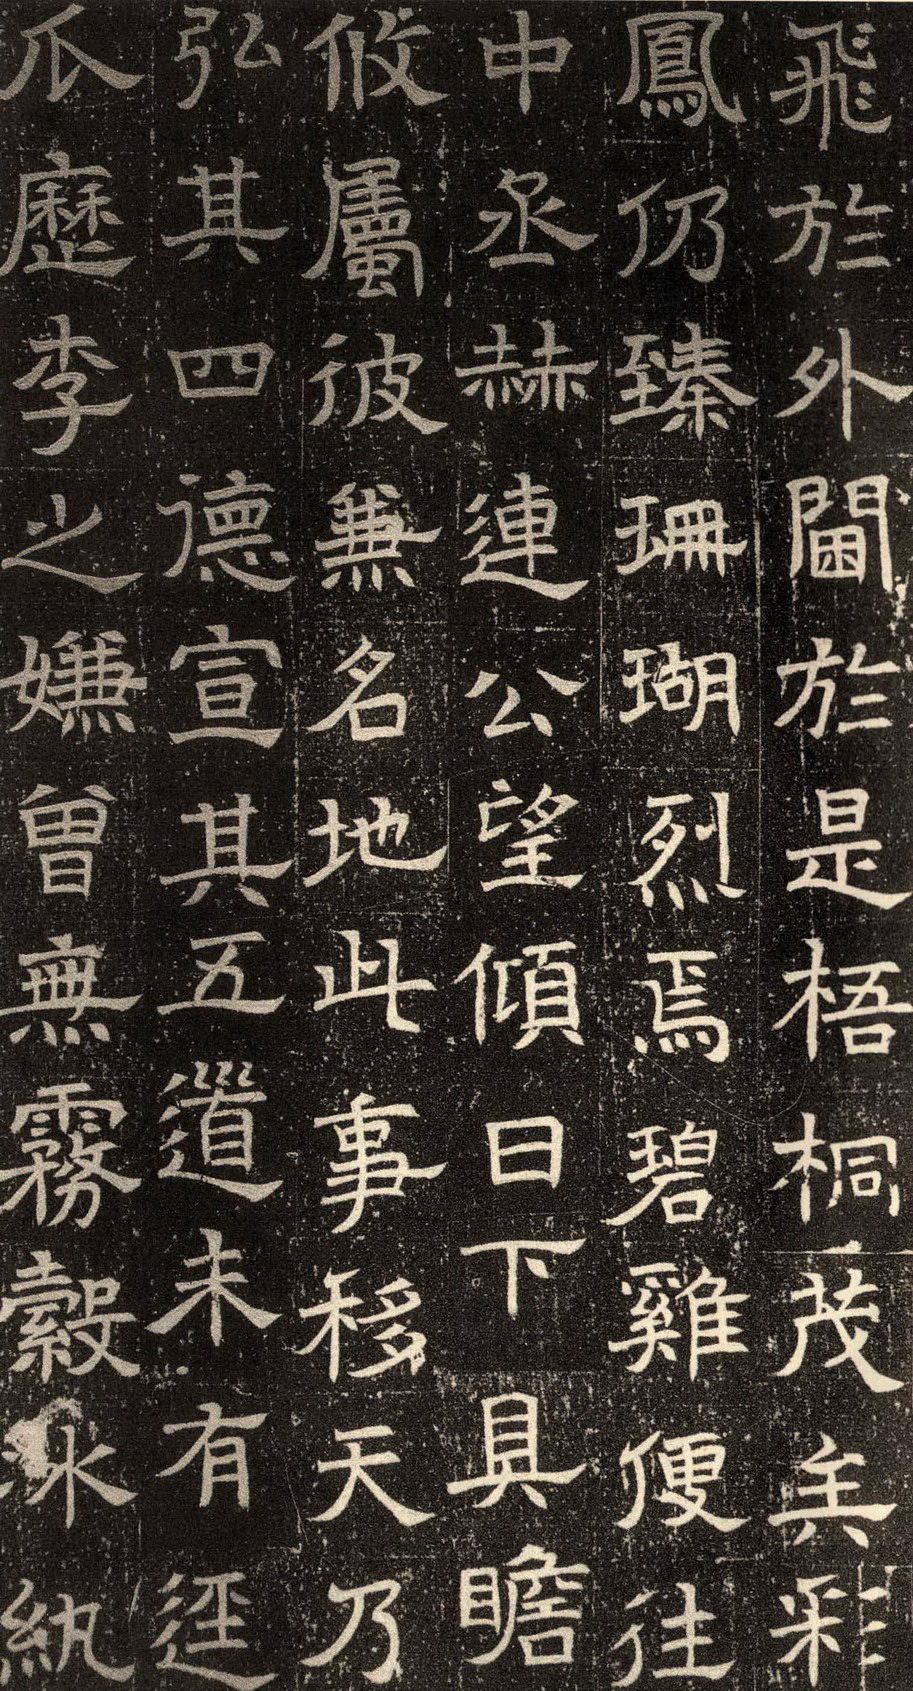 飛於外閫於是梧桐茂矣彩
鳳仍臻珊瑚烈焉碧雞便往
中丞赫連公望傾日下具瞻
攸屬彼兼名地此事移天乃
弘其四德宣其五道未有逕
瓜歷李之嫌曾無霧縠冰紈